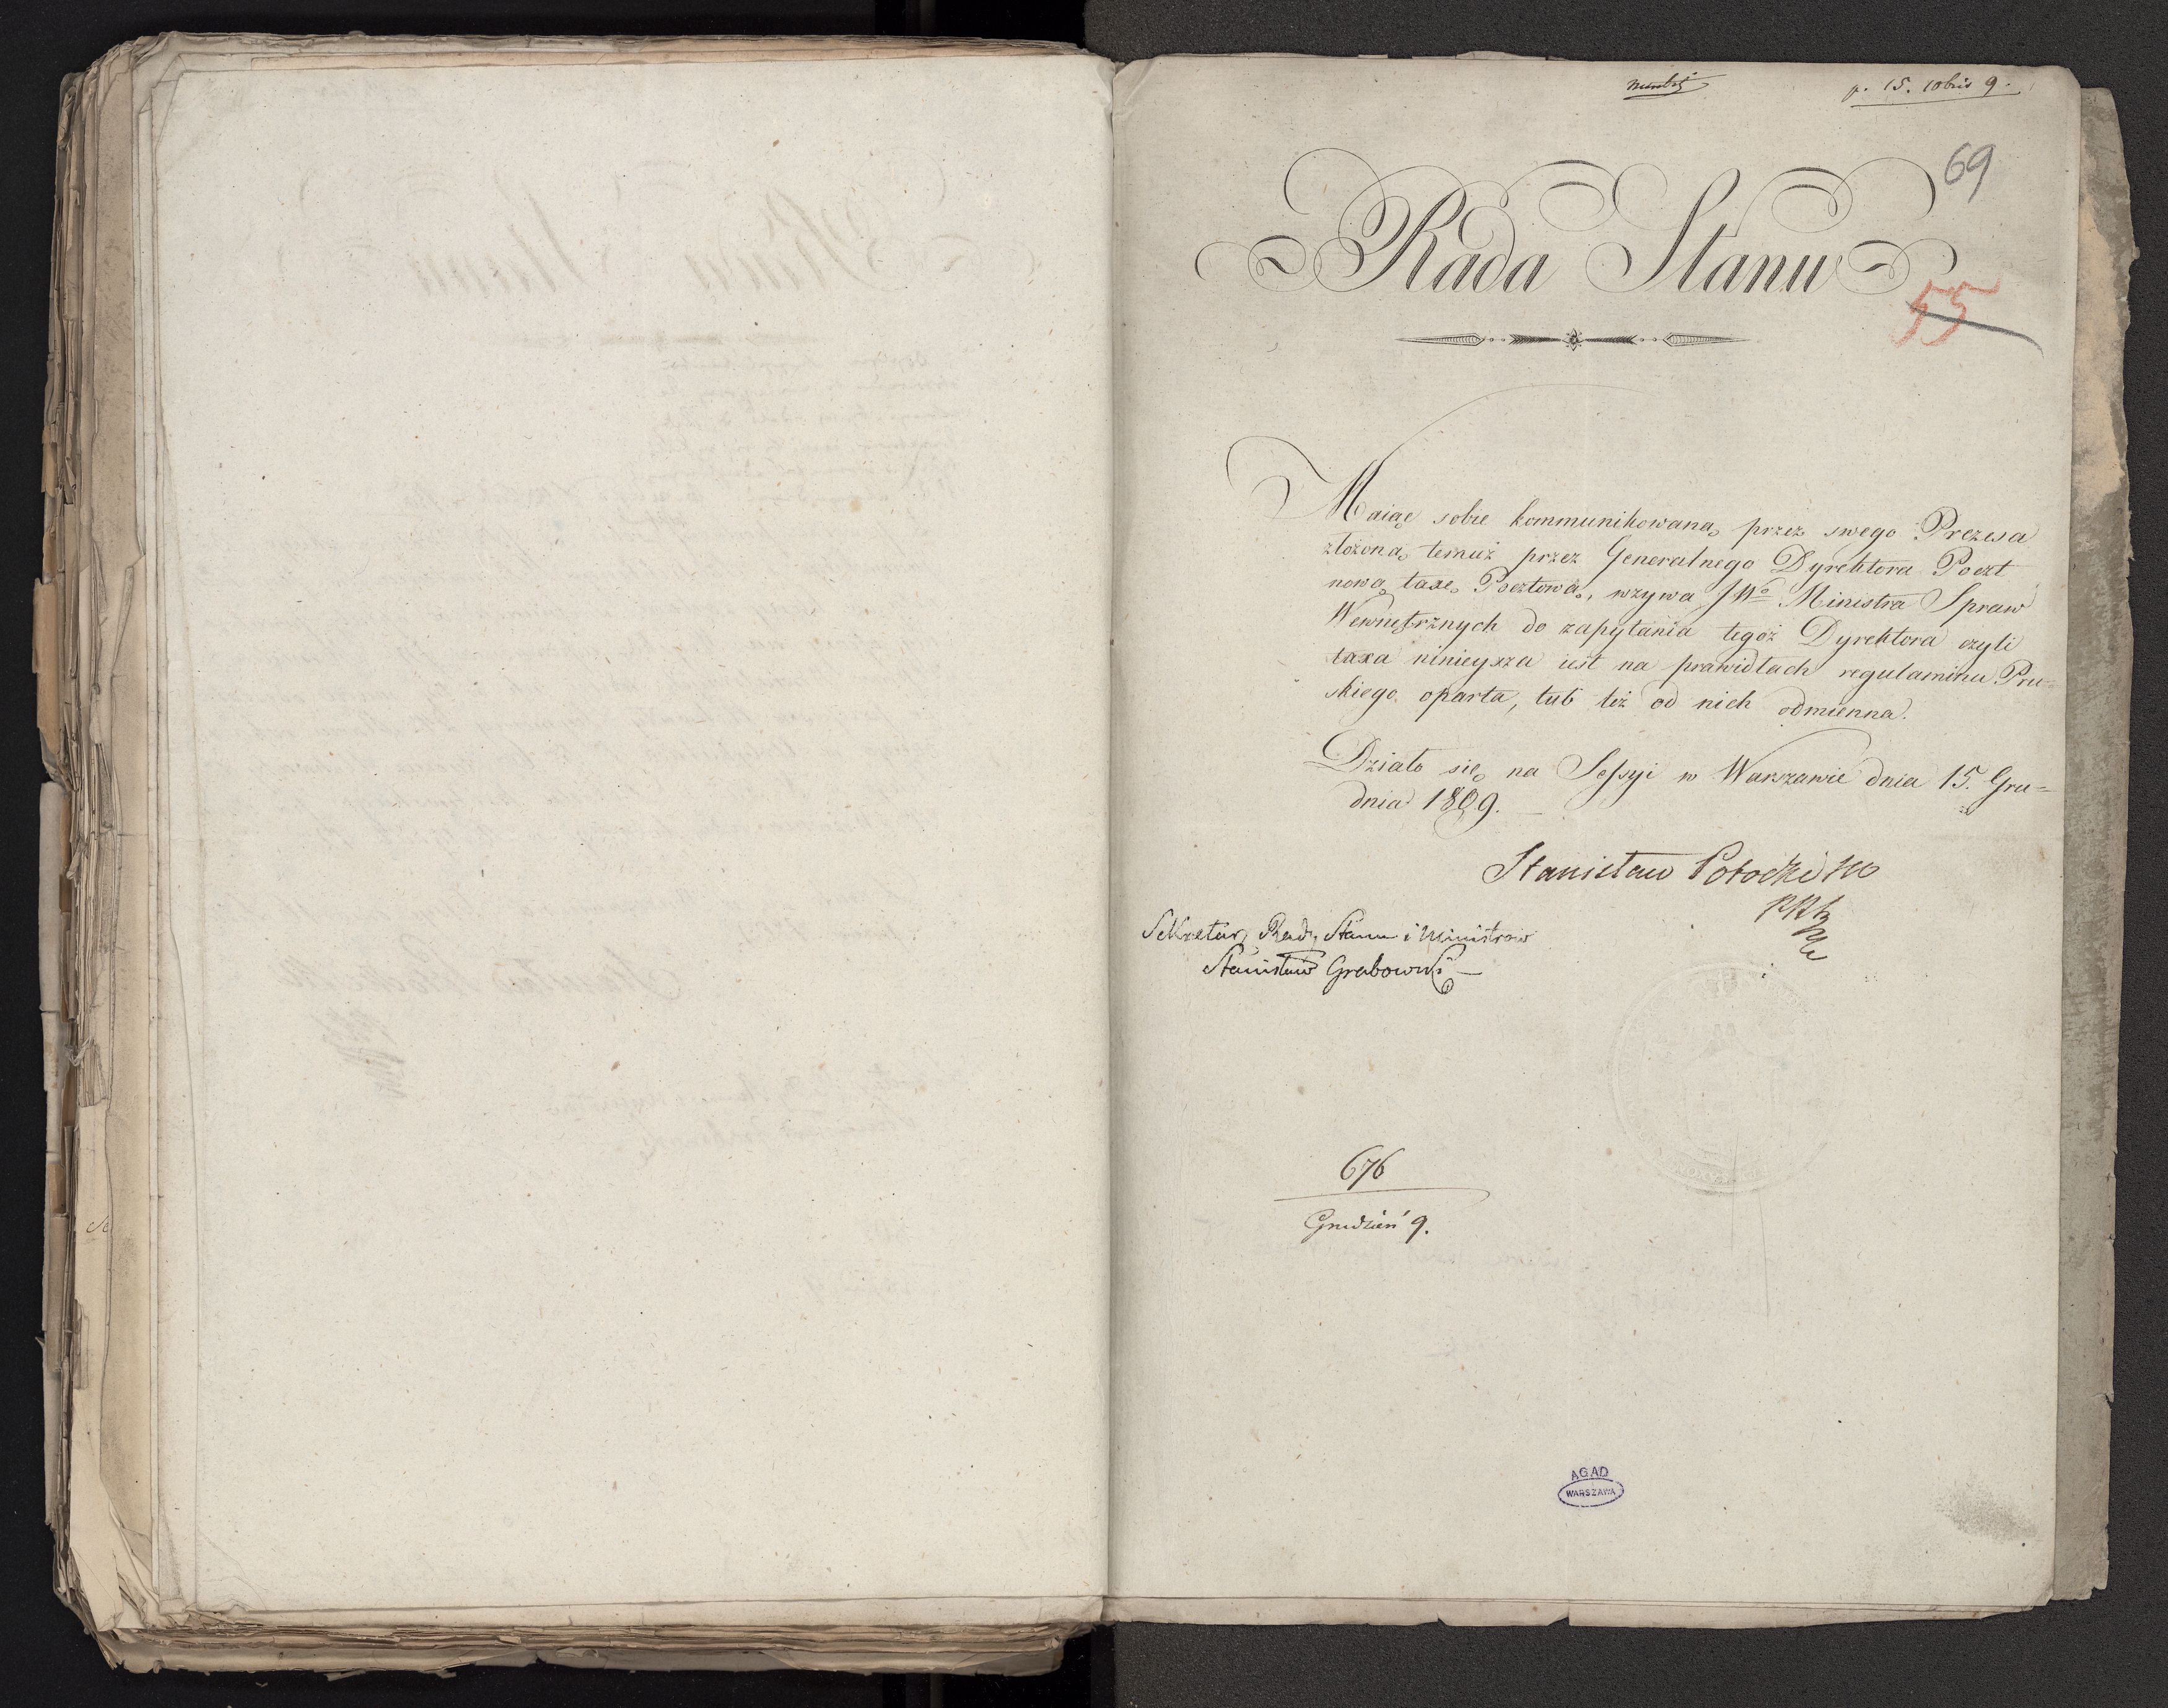 p. 15. 10bris 9.
69
Rada Stanu
55
Maiąc sobie kommunikowaną przez swego Prezesa
złożoną temuż przez Generalnego Dyrektora Poczt
nową taxę Pocztową, wzywa JWo Ministra Spraw
Wewnętrznych do zapytania tegoż Dyrektora czyli
taxa ninieysza iest na prawidłach regulaminu Pru=
skiego oparta, lub też od nich odmienna.
Działo się na Sessyi w Warszawie dnia 15. Gru=
dnia 1809.
Stanisław Potocki
Sekretarz Rady Stanu i Ministrow
Stanisław Grabowski
676
Grudzień 9.
AGAD
WARSZAWA